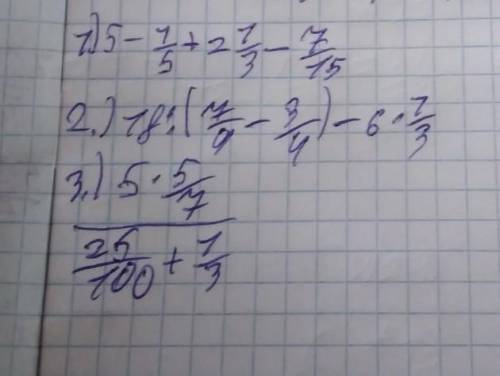 1.) 5 - 1/5 + 2 1/3 - 7/15
2.) 18 : (7/9 - 3/4) - 6 · 1/3
3.) 5 · 5/7
25/100 + 1/3